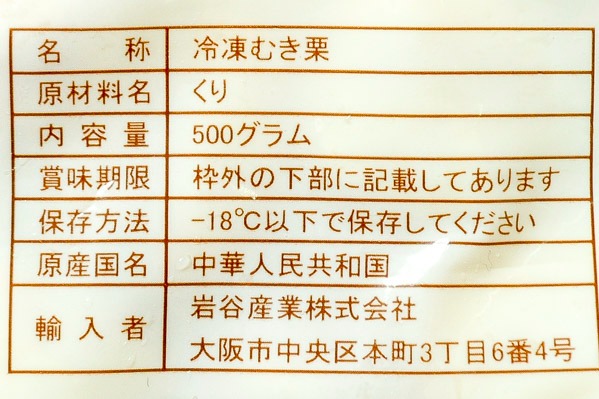 名称 冷凍むき栗
原材料名 くり
内容量 500グラム
賞味期限 枠外の下部に記載してあります
保存方法 -18℃以下で保存してください
原産国名 中華人民共和国
輸入者 岩谷産業株式会社
大阪市中央区本町3丁目6番4号